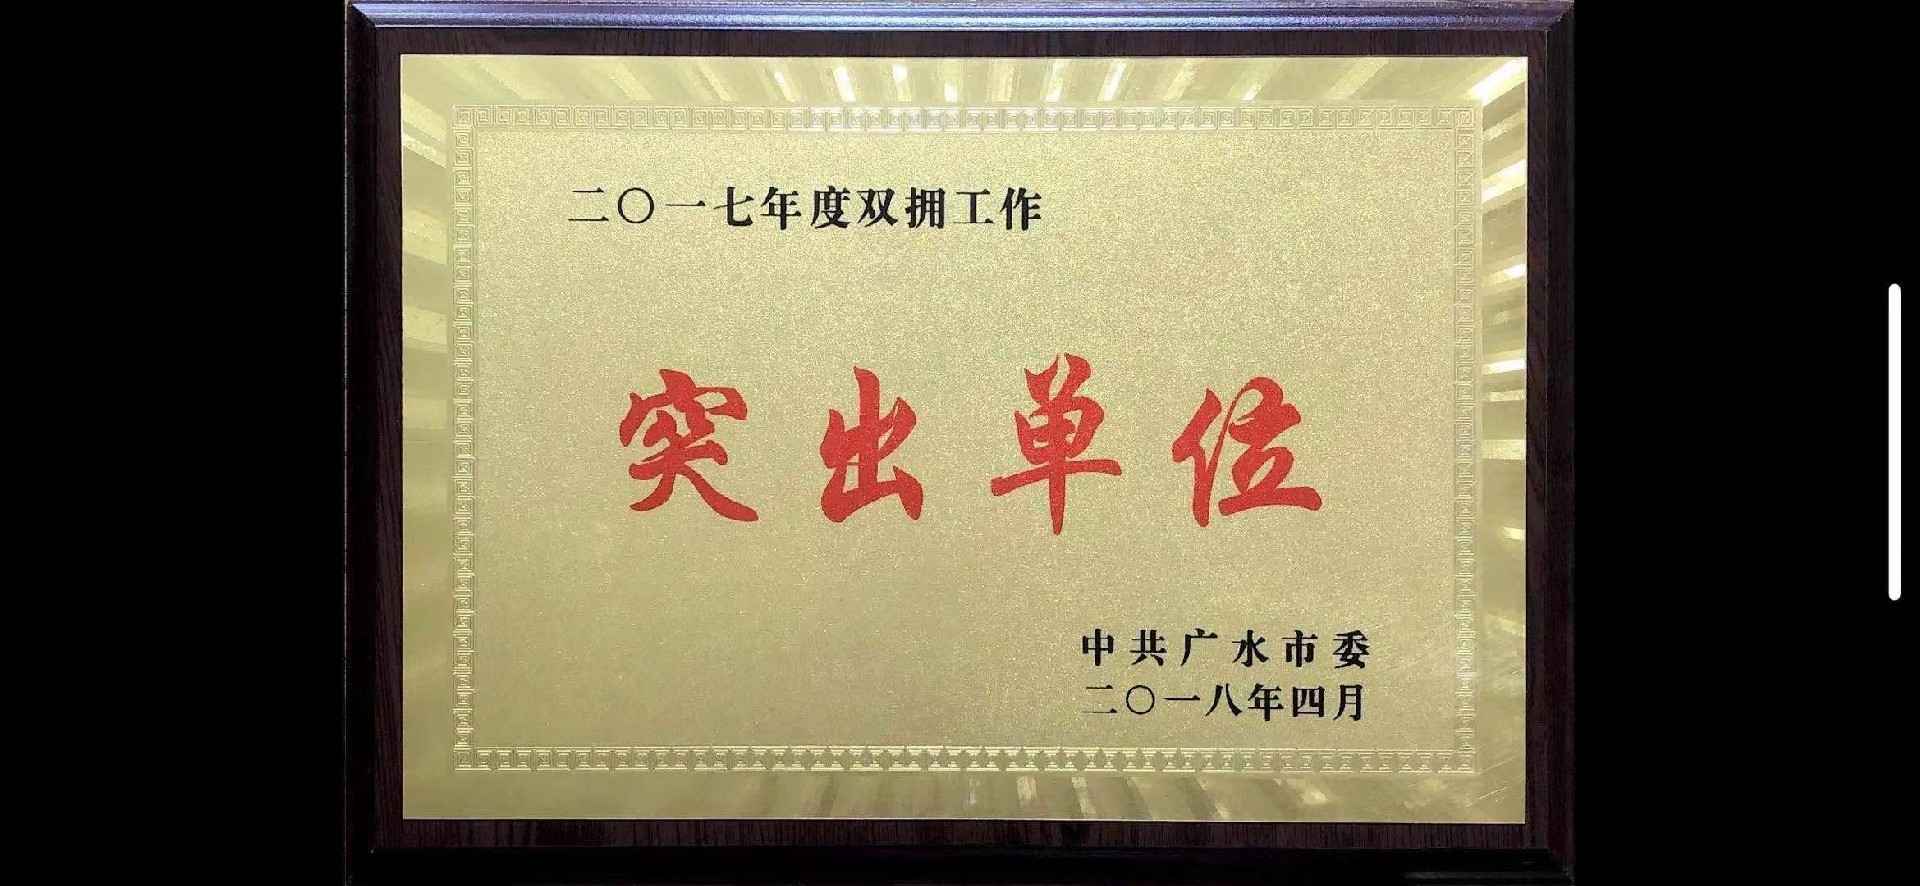 二〇一七年度双拥工作
突出单位
中共广水市委
二〇一八年四月